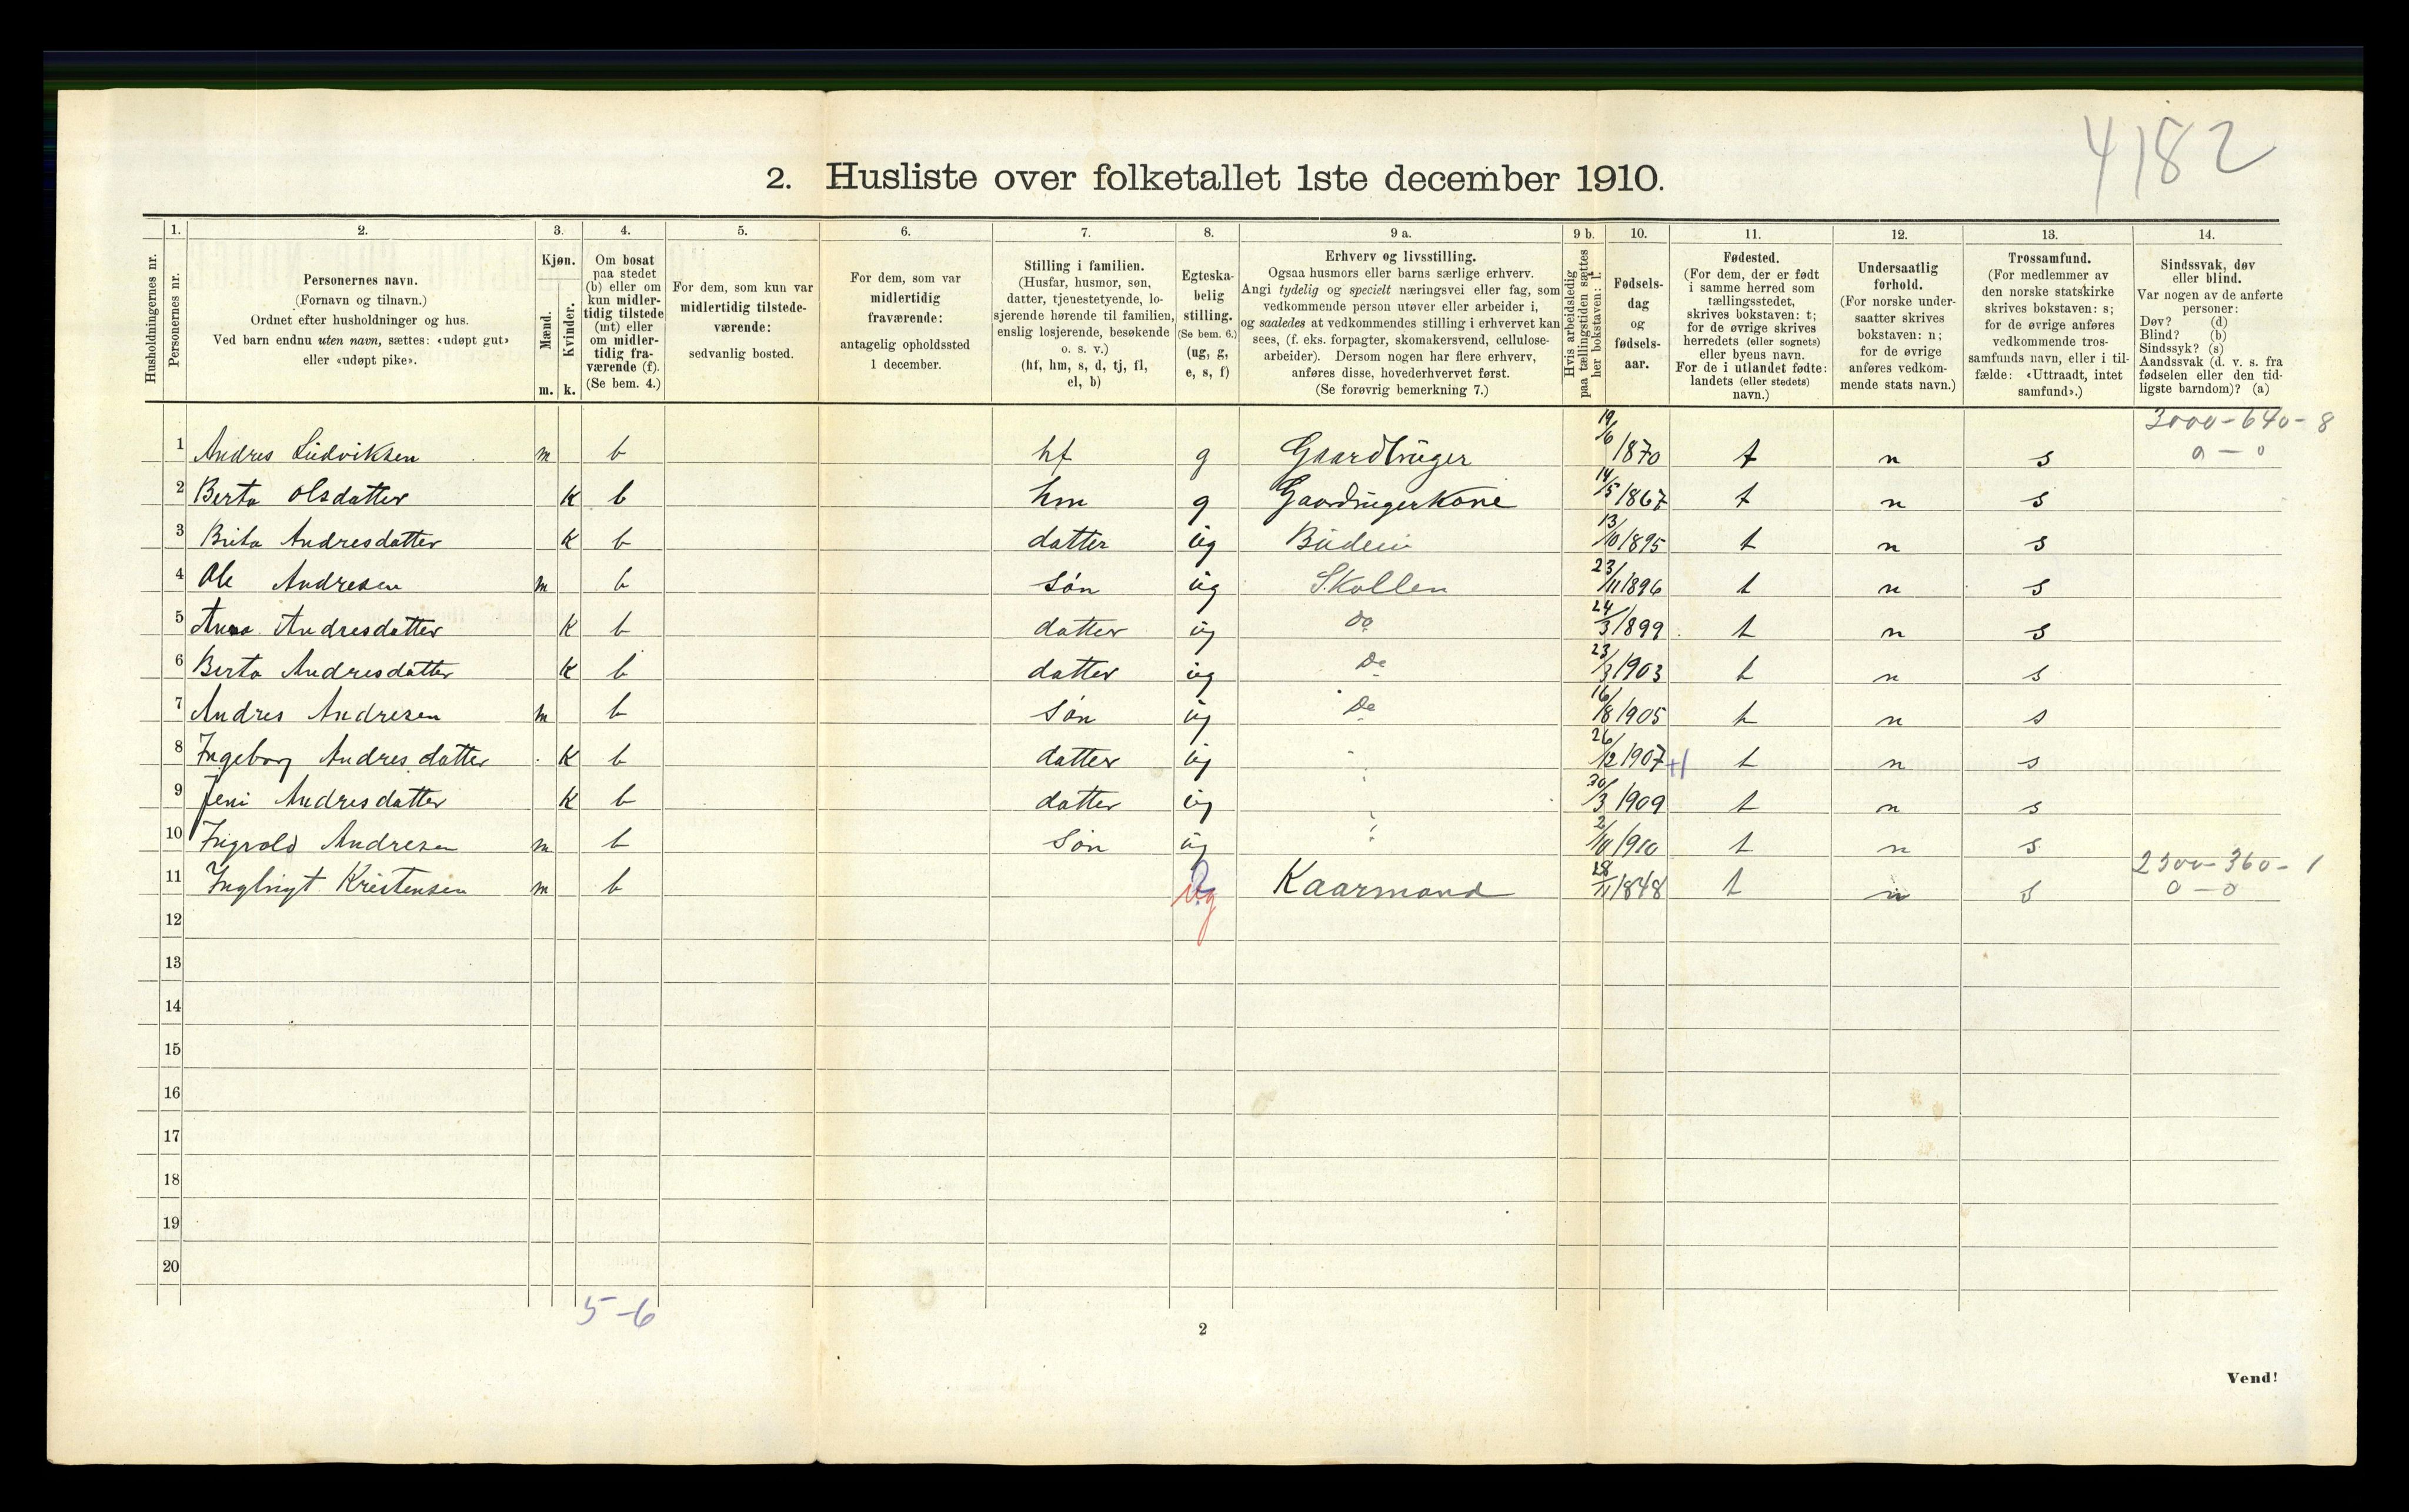 4182
2. Husliste over folketallet 1ste december 1910.
Husholdningernes nr.
1. Personernes nr.
2. Personernes navn. (Fornavn og tilnavn.) Ordnet efter husholdninger og hus. Ved barn endnu uten navn, sættes: «udøpt gut» eller «udøpt pike».
3. Kjøn. Mænd. m. Kvinder. k.
4. Om bosat paa stedet (b) eller om kun midlertidig tilstede (mt) eller om midlertidig fraværende (f). (Se bem. 4.)
5. For dem, som kun var midlertidig tilstedeværende: sedvanlig bosted.
6. For dem, som var midlertidig fraværende: antagelig opholdssted 1 december.
7. Stilling i familien. (Husfar, husmor, søn, datter, tjenestetyende, losjerende hørende til familien, enslig losjerende, besøkende o. s. v.) (hf, hm, s, d, tj, fl, el, b)
8. Egteskabelig stilling. (Se bem. 6.) (ug, g, e, s, f)
9 a. Erhverv og livsstilling. Ogsaa husmors eller barns særlige erhverv. Angi tydelig og specielt næringsvei eller fag, som vedkommende person utøver eller arbeider i, og saaledes at vedkommendes stilling i erhvervet kan sees, (f. eks. forpagter, skomakersvend, cellulosearbeider). Dersom nogen har flere erhverv, anføres disse, hovederhvervet først. (Se forøvrig bemerkning 7.)
9 b. Hvis arbeidsledig paa tællingstiden sættes her bokstaven: l.
10. Fødselsdag og fødselsaar.
11. Fødested. (For dem, der er født i samme herred som tællingsstedet, skrives bokstaven: t; for de øvrige skrives herredets (eller sognets) eller byens navn. For de i utlandet fødte: landets (eller stedets) navn.)
12. Undersaatlig forhold. (For norske undersaatter skrives bokstaven: n; for de øvrige anføres vedkommende stats navn.)
13. Trossamfund. (For medlemmer av den norske statskirke skrives bokstaven: s; for de øvrige anføres vedkommende trossamfunds navn, eller i tilfælde: «Uttraadt, intet samfund».)
14. Sindssvak, døv eller blind. Var nogen av de anførte personer: Døv? (d) Blind? (b) Sindssyk? (s) Aandssvak (d. v. s. fra fødselen eller den tidligste barndom)? (a)
3000-640-8
0 - 0
1 Andres Ludviksen m b hf g Gaardbruger 19/6 1870 t n s
2 Berta Olsdatter K b hm g Gaardrugerkone 14/5 1867 t n s
3 Brita Andresdatter K b datter ug Budeie 13/10 1895 t n s
4 Ole Andresen m b Søn ug Skollen 23/11 1896 t n s
5 Anna Andresdatter K b datter ug do 24/3 1899 t n s
6 Berta Andresdatter K b datter ug Do 23/3 1903 t n s
7 Andres Andresen m b Søn ug Do 16/8 1905 t n s
8 Ingeborg Andresdatter K b datter ug 26/12 1907 t n s
9 Jeni Andresdatter K b datter ug 30/3 1909 t n s
10 Ingvald Andresen m b Søn ug 2/10 1910 t n s
2300-360-1
0 - 0
11 Ingbrigt Kristensen m b ug Kaarmand 28/11 1848 t n s
12
13
14
15
16
17
18
19
20
5-6
2
Vend!